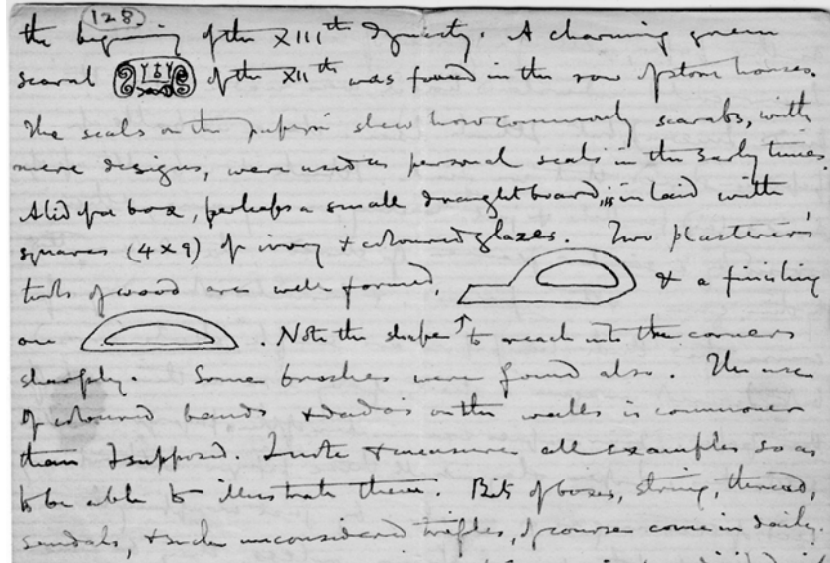 (128)
the beginning of the XIIIth Dynasty. A charming green
scarab of the XIIth was found in the row of stone houses.
The seals on the papyri shew how commonly scarabs, with
mere designs, were used as personal seals in the early times.
A lid of a box, perhaps a small draughtboard, is inlaid with
squares (4 x 9) of ivory & coloured glazes. Two plasterers'
tools of wood are well formed, & a finishing
one . Note the shape ↑ to reach into the corners
sharply. Some brushes were found also. The use
of coloured bands & dados on the walls is commoner
than I supposed. I note & measure all examples so as
to be able to illustrate them. Bits of boxes, string, thread,
sandals, & such unconsidered trifles, of course come in daily.